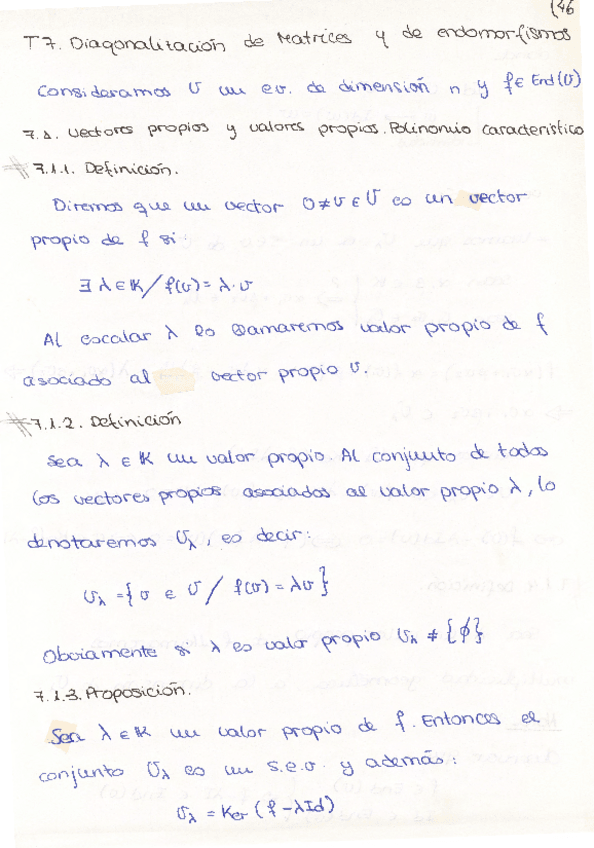 (46
T7. Diagonalización de Matrices y de endomorfismos
Consideramos U un e.v. de dimensión n y f ∈ End(U)
7.1. Vectores propios y valores propios. Polinomio característico
# 7.1.1. Definición.
Diremos que un vector 0≠v∈U es un vector
propio de f si:
∃ λ ∈ K / f(v) = λ·v
Al escalar λ lo llamaremos valor propio de f
asociado al vector propio v.
# 7.1.2. Definición
Sea λ ∈ K un valor propio. Al conjunto de todos
los vectores propios asociados al valor propio λ, lo
denotaremos Uλ, es decir:
Uλ = { v ∈ U / f(v) = λv }
Obviamente si λ es valor propio Uλ ≠ {ϕ}
7.1.3. Proposición.
Sea λ ∈ K un valor propio de f. Entonces el
conjunto Uλ es un s.e.v. y además:
Uλ = Ker (f - λId)